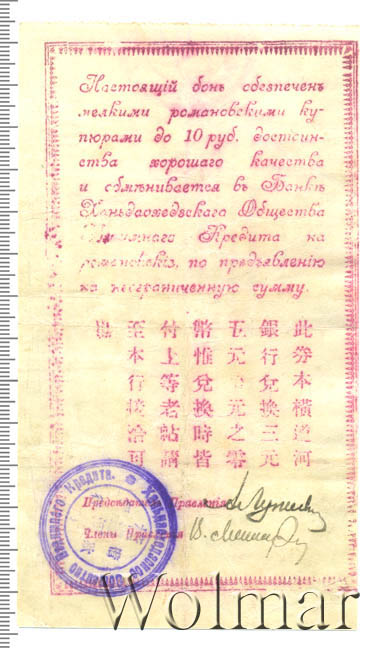 Настоящій бонъ обезпеченъ
мелкими романовскими ку-
пюрами до 10 руб. достоин-
ства хорошаго качества
и обмѣнивается въ Банкѣ
Ханьдаохедзскаго Общества
Взаимнаго Кредита на
романовскія, по предъявленію
на неограниченную сумму.
此券本橫道河
銀行兌換三元
五元元之零
幣惟兌換時皆
付上等老帖請
至本行接洽可
也
Предсѣдатель Правленія
Члены Правленія
Общество Взаимнаго Кредита
Wolmar